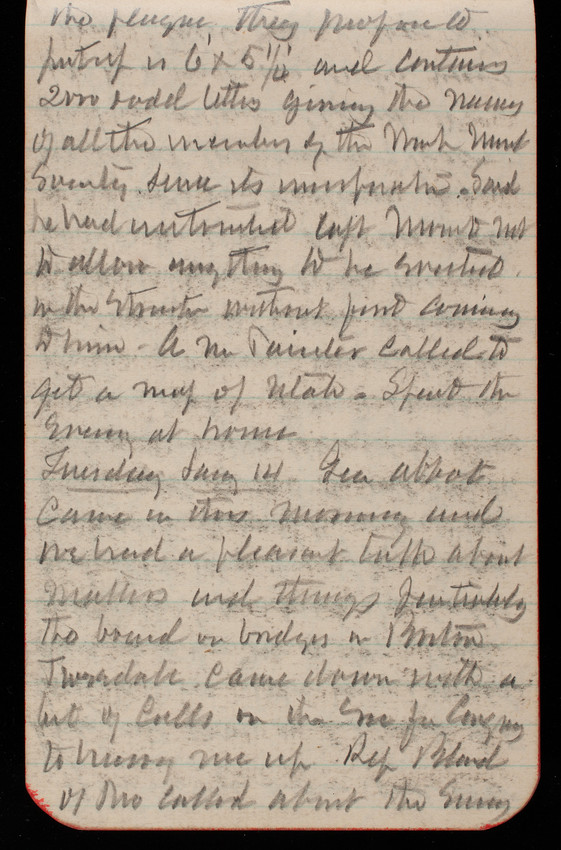 the plaque, they propose to
put up is 6' x 5' 1/4 and contains
2000 odd letters giving the names
of all the members of the Wash Mont
Society since its incorporation. Said
he had instructed Capt Mount not
to allow anything to be erected
in the Structure without first coming
to him - A Mr Painter called to
get a map of Utah. Spent the
Evening at home
Tuesday Jany 14 Gen Abbot
came in this morning and
we had a pleasant talk about
Matters and things particularly
the board on bridges in Boston
Tweedale came down with a
lot of Calls on the Engr for Congress
to hurry me up Rep Bland
of Mo called about the Survey